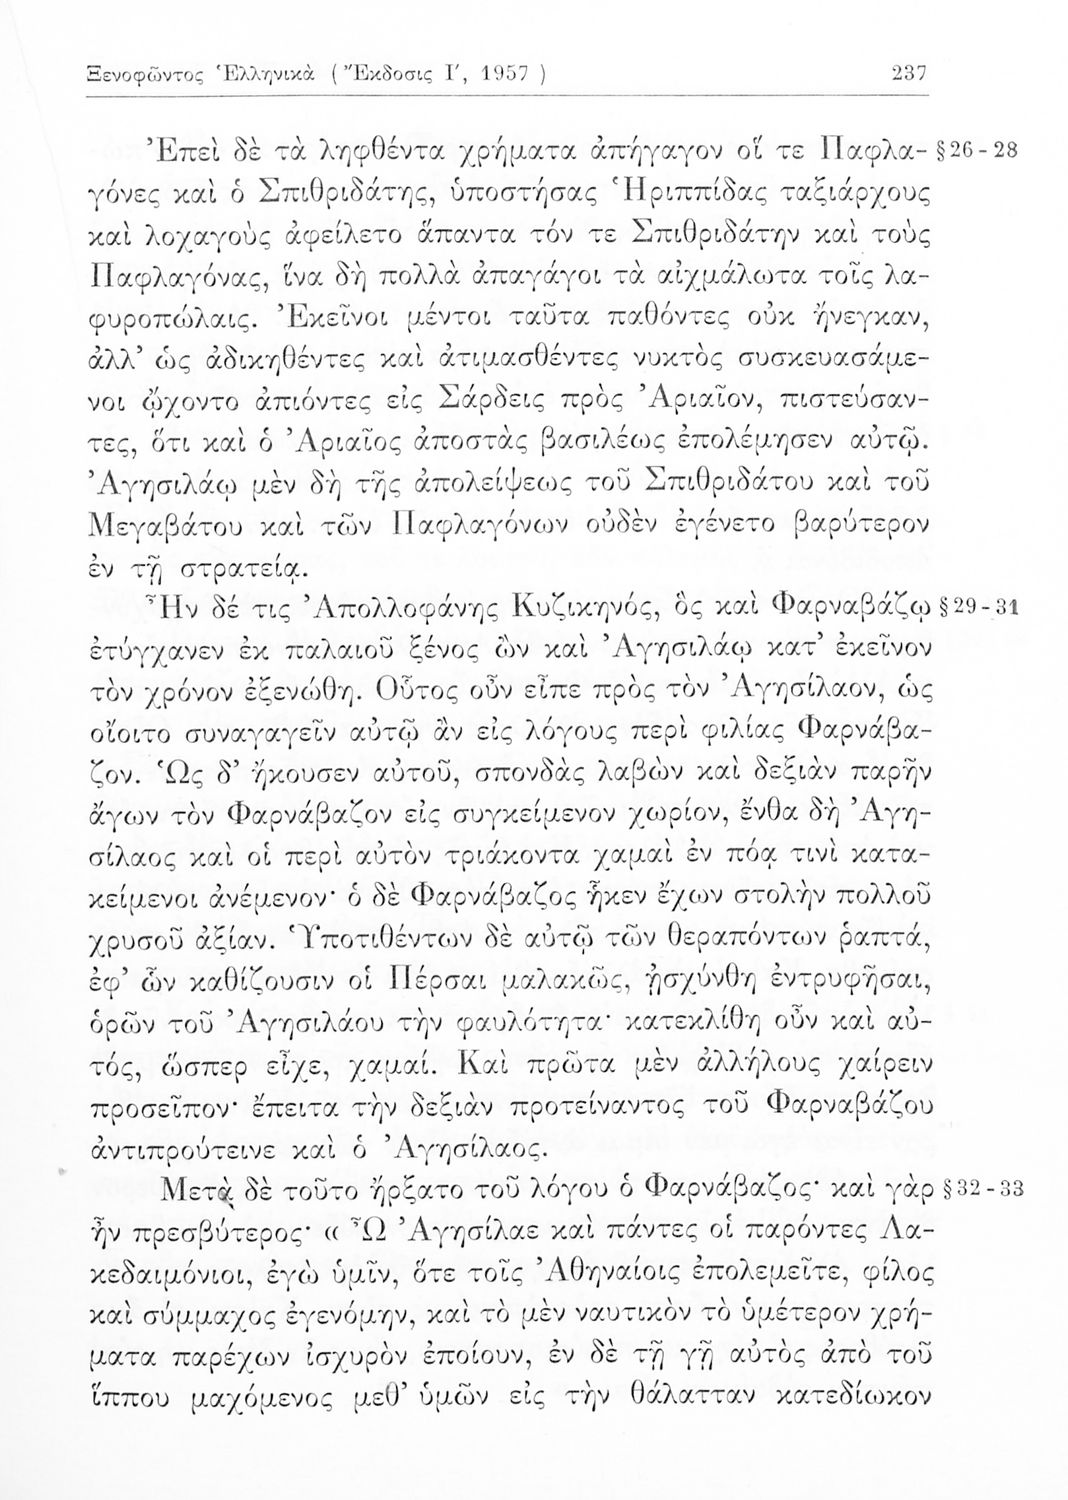 Ξενοφῶντος Ἑλληνικὰ ( Ἔκδοσις Ι′, 1957 ) 237
Ἐπεὶ δὲ τὰ ληφθέντα χρήματα ἀπήγαγον οἵ τε Παφλα- § 26 - 28
γόνες καὶ ὁ Σπιθριδάτης, ὑποστήσας Ἡριππίδας ταξιάρχους
καὶ λοχαγοὺς ἀφείλετο ἅπαντα τόν τε Σπιθριδάτην καὶ τοὺς
Παφλαγόνας, ἵνα δὴ πολλὰ ἀπαγάγοι τὰ αἰχμάλωτα τοῖς λα-
φυροπώλαις. Ἐκεῖνοι μέντοι ταῦτα παθόντες οὐκ ἤνεγκαν,
ἀλλ’ ὡς ἀδικηθέντες καὶ ἀτιμασθέντες νυκτὸς συσκευασάμε-
νοι ᾤχοντο ἀπιόντες εἰς Σάρδεις πρὸς Ἀριαῖον, πιστεύσαν-
τες, ὅτι καὶ ὁ Ἀριαῖος ἀποστὰς βασιλέως ἐπολέμησεν αὐτῷ.
Ἀγησιλάῳ μὲν δὴ τῆς ἀπολείψεως τοῦ Σπιθριδάτου καὶ τοῦ
Μεγαβάτου καὶ τῶν Παφλαγόνων οὐδὲν ἐγένετο βαρύτερον
ἐν τῇ στρατείᾳ.
Ἦν δέ τις Ἀπολλοφάνης Κυζικηνός, ὃς καὶ Φαρναβάζῳ § 29 - 31
ἐτύγχανεν ἐκ παλαιοῦ ξένος ὢν καὶ Ἀγησιλάῳ κατ’ ἐκεῖνον
τὸν χρόνον ἐξενώθη. Οὗτος οὖν εἶπε πρὸς τὸν Ἀγησίλαον, ὡς
οἴοιτο συναγαγεῖν αὐτῷ ἂν εἰς λόγους περὶ φιλίας Φαρνάβα-
ζον. Ὡς δ’ ἤκουσεν αὐτοῦ, σπονδὰς λαβὼν καὶ δεξιὰν παρῆν
ἄγων τὸν Φαρνάβαζον εἰς συγκείμενον χωρίον, ἔνθα δὴ Ἀγη-
σίλαος καὶ οἱ περὶ αὐτὸν τριάκοντα χαμαὶ ἐν πόᾳ τινὶ κατα-
κείμενοι ἀνέμενον· ὁ δὲ Φαρνάβαζος ἧκεν ἔχων στολὴν πολλοῦ
χρυσοῦ ἀξίαν. Ὑποτιθέντων δὲ αὐτῷ τῶν θεραπόντων ῥαπτά,
ἐφ’ ὧν καθίζουσιν οἱ Πέρσαι μαλακῶς, ᾐσχύνθη ἐντρυφῆσαι,
ὁρῶν τοῦ Ἀγησιλάου τὴν φαυλότητα· κατεκλίθη οὖν καὶ αὐ-
τός, ὥσπερ εἶχε, χαμαί. Καὶ πρῶτα μὲν ἀλλήλους χαίρειν
προσεῖπον· ἔπειτα τὴν δεξιὰν προτείναντος τοῦ Φαρναβάζου
ἀντιπρούτεινε καὶ ὁ Ἀγησίλαος.
Μετὰ δὲ τοῦτο ἤρξατο τοῦ λόγου ὁ Φαρνάβαζος· καὶ γὰρ § 32 - 33
ἦν πρεσβύτερος· « Ὦ Ἀγησίλαε καὶ πάντες οἱ παρόντες Λα-
κεδαιμόνιοι, ἐγὼ ὑμῖν, ὅτε τοῖς Ἀθηναίοις ἐπολεμεῖτε, φίλος
καὶ σύμμαχος ἐγενόμην, καὶ τὸ μὲν ναυτικὸν τὸ ὑμέτερον χρή-
ματα παρέχων ἰσχυρὸν ἐποίουν, ἐν δὲ τῇ γῇ αὐτὸς ἀπὸ τοῦ
ἵππου μαχόμενος μεθ’ ὑμῶν εἰς τὴν θάλατταν κατεδίωκον